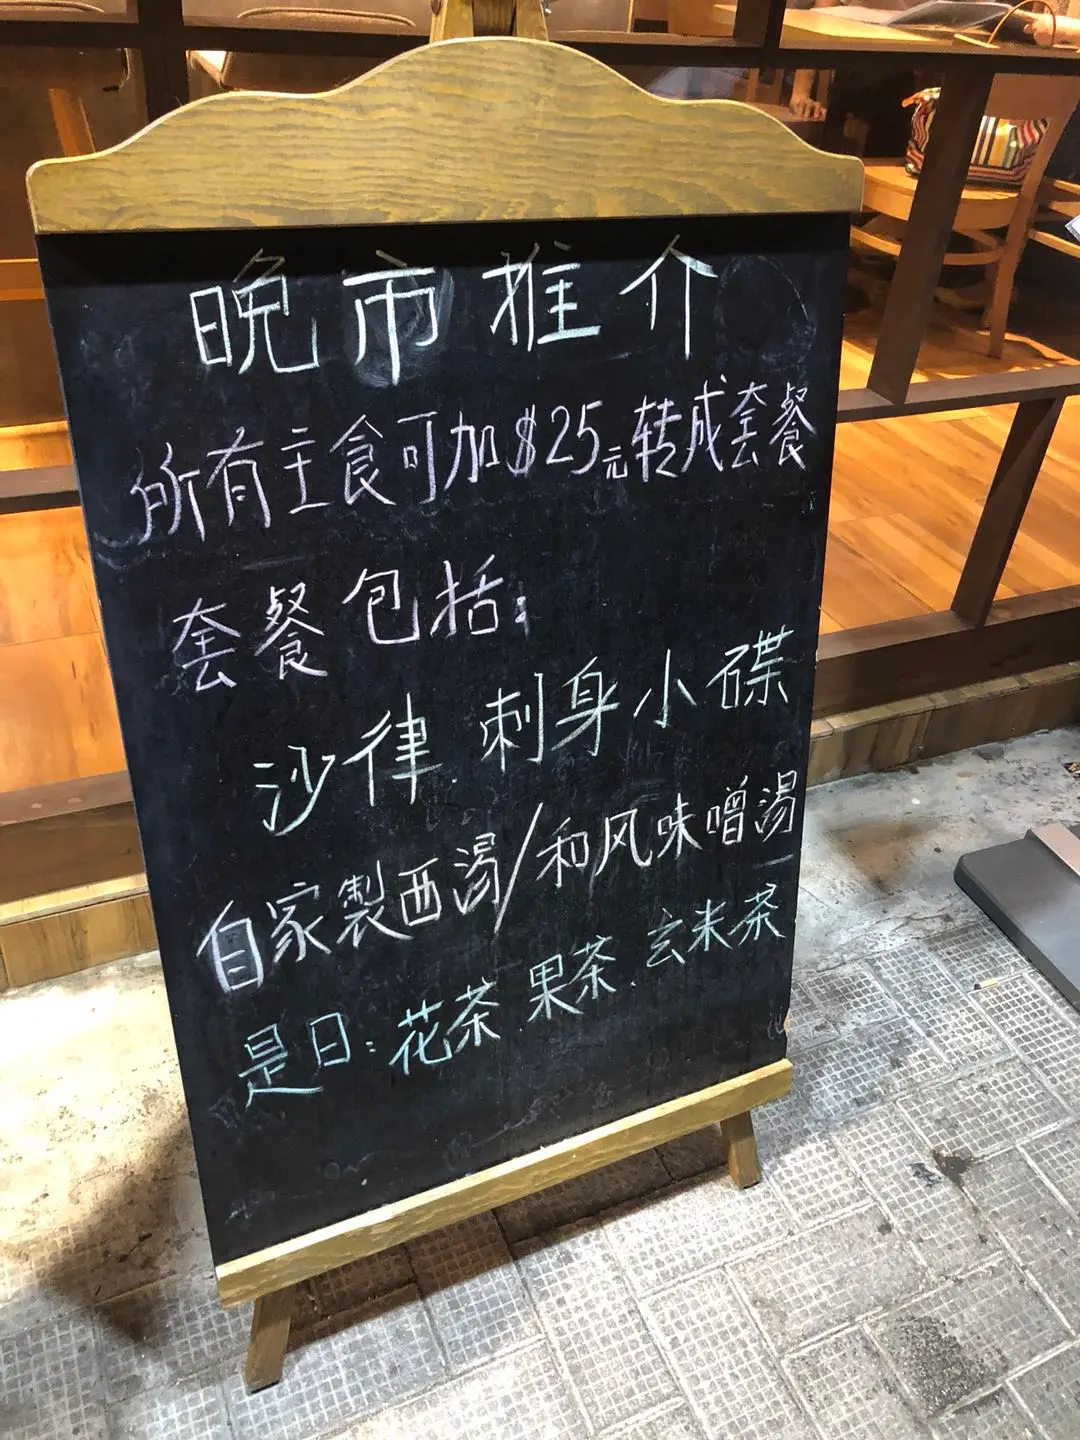 晚市推介
所有主食可加$25元转成套餐
套餐包括:
沙律 刺身小碟
自家製西湯/和风味噌湯
是日:花茶 果茶.玄米茶